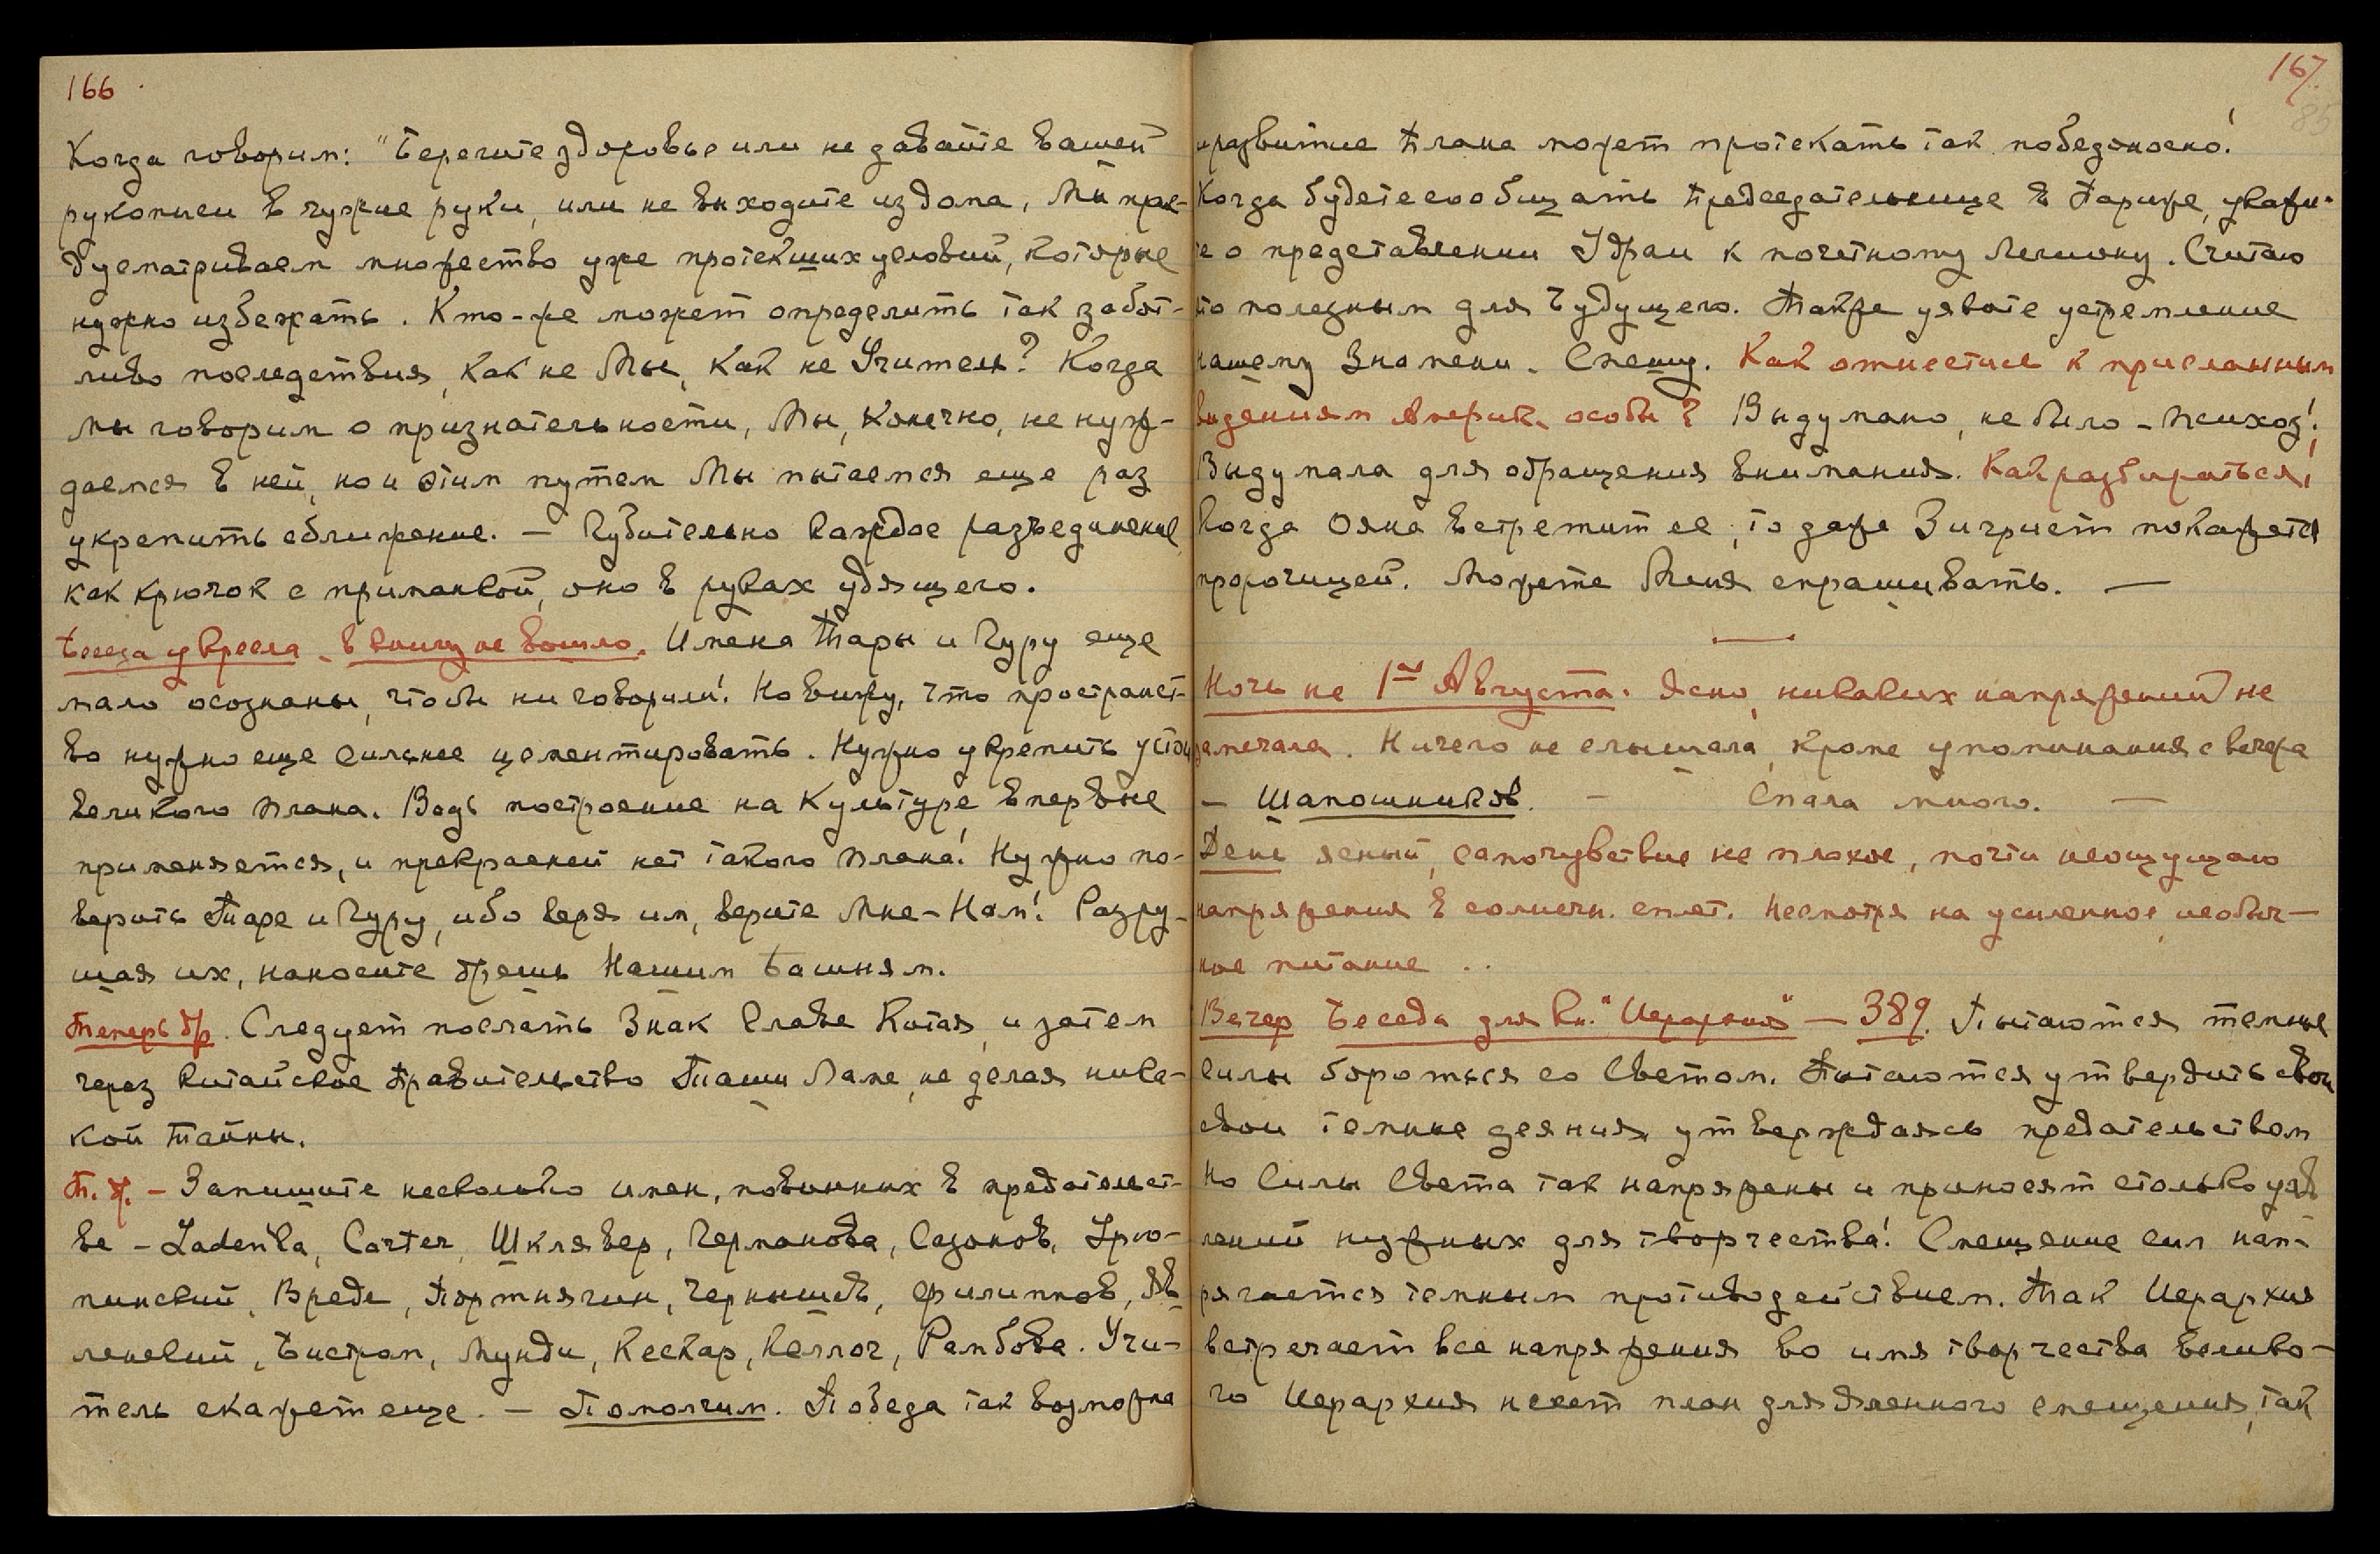 166
Когда говорим: "Берегите здоровье или не давайте вашей
рукописи в чужие руки, или не выходите из дома, Мы пре-
дусматриваем множество уже протекших условий, которые
нужно избежать. Кто-же может определить так забот-
ливо последствия, как не Мы, как не Учитель? Когда
мы говорим о признательности, Мы, конечно, не нуж-
даемся в ней, но и этим путем Мы пытаемся еще раз
укрепить сближение. — Губительно каждое разъединение,
как крючок с приманкой, оно в руках удящего.
Беседа у кресла - в книгу не вошло. Имена Тары и Гуру еще
мало осознаны, что бы ни говорили! Но вижу, что пространст-
во нужно еще сильнее цементировать. Нужно укрепить устои
великого плана. Ведь построение на Культуре впервые
применяется, и прекрасней нет такого плана! Нужно по-
верить Таре и Гуру, ибо веря им, верите Мне-Нам! Разру-
шая их, наносите брешь Нашим Башням.
Теперь др. Следует послать Знак Славы Китая, и затем
через китайское правительство Таши Ламе, не делая ника-
кой тайны.
Т. д. - Запишите несколько имен, повинных в предательст-
ве - Laden'La, Carter, Шклявер, Германова, Сазонов,
Вреде, Портнягин, Чернышев, Филиппов, Яв
ленский, Быстров, Мунди, Кескар, Келлог, Рамбова. Учи-
тель скажет еще. — Помолчим. Победа так возможна
167.
85
и развитие Плана может протекать так победоносно!
Когда будете сообщать Председательнице в Париже, укажи-
те о представлении Удраи к почетному Легиону. Считаю
это полезным для будущего. Также уявите устремление
нашему Знамени. Спешу. Как отнестись к присланным
видениям Америк. особы? Выдумано, не было - психоз!
Выдумала для обращения внимания. Как разбираться!
Когда Ояна встретит ее, то даже Зигрист покажется
пророчицей. Можете Меня спрашивать. —
Ночь на 1ое Августа. Ясно, никаких напряжений не
замечала. Ничего не слышала, кроме упоминания с вечера
— Шапошников. — Спала много. —
День ясный, самочувствие не плохое, почти неощущаю
напряжения в солнечн. сплет. Несмотря на усиленное, необыч-
ное питание ..
Вечер Беседа для кн. "Иерархия" — 389. Пытаются темные
силы бороться со Светом. Пытаются утвердить свои
свои темные деяния, утверждаясь предательством
Но Силы Света так напряжены и приносят столько уяв
лений нужных для творчества! Смещение сил нап-
рягается темным противодействием. Так Иерархия
встречает все напряжения во имя творчества велико-
го Иерархия несет план для данного смещения, так